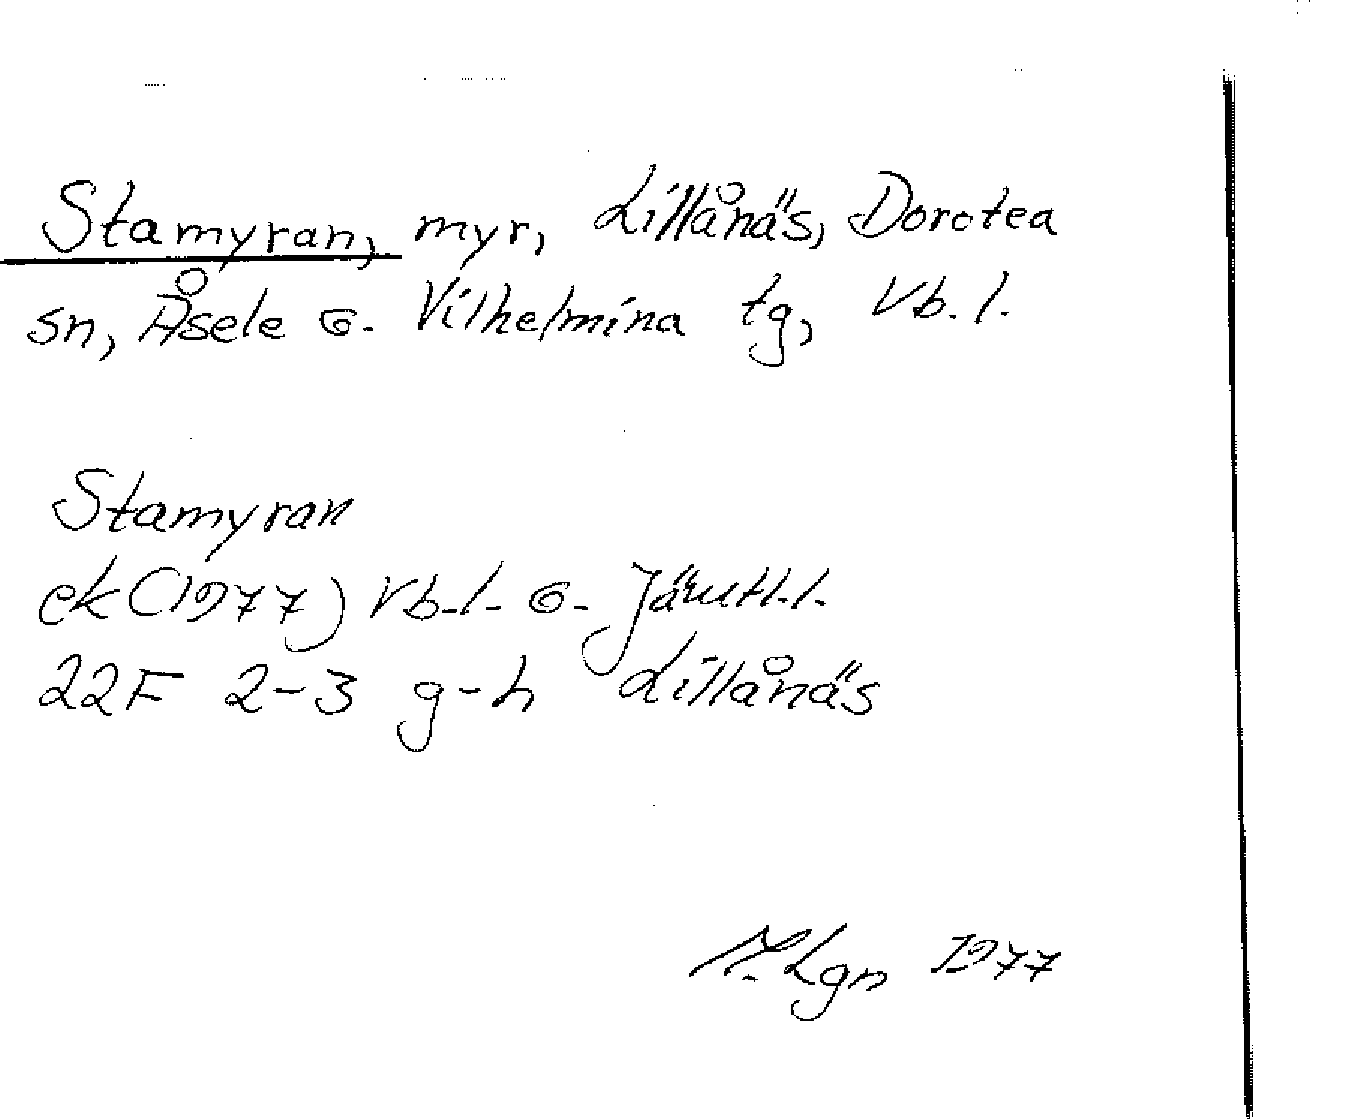 Stamyran, myr, Lillånäs, Dorotea
sn, Åsele o. Vilhelmina tg, Vb. l.
Stamyran
ek (1977) Vb. l. o.
22F 2-3 g-h Lillånäs
Lgn 1977